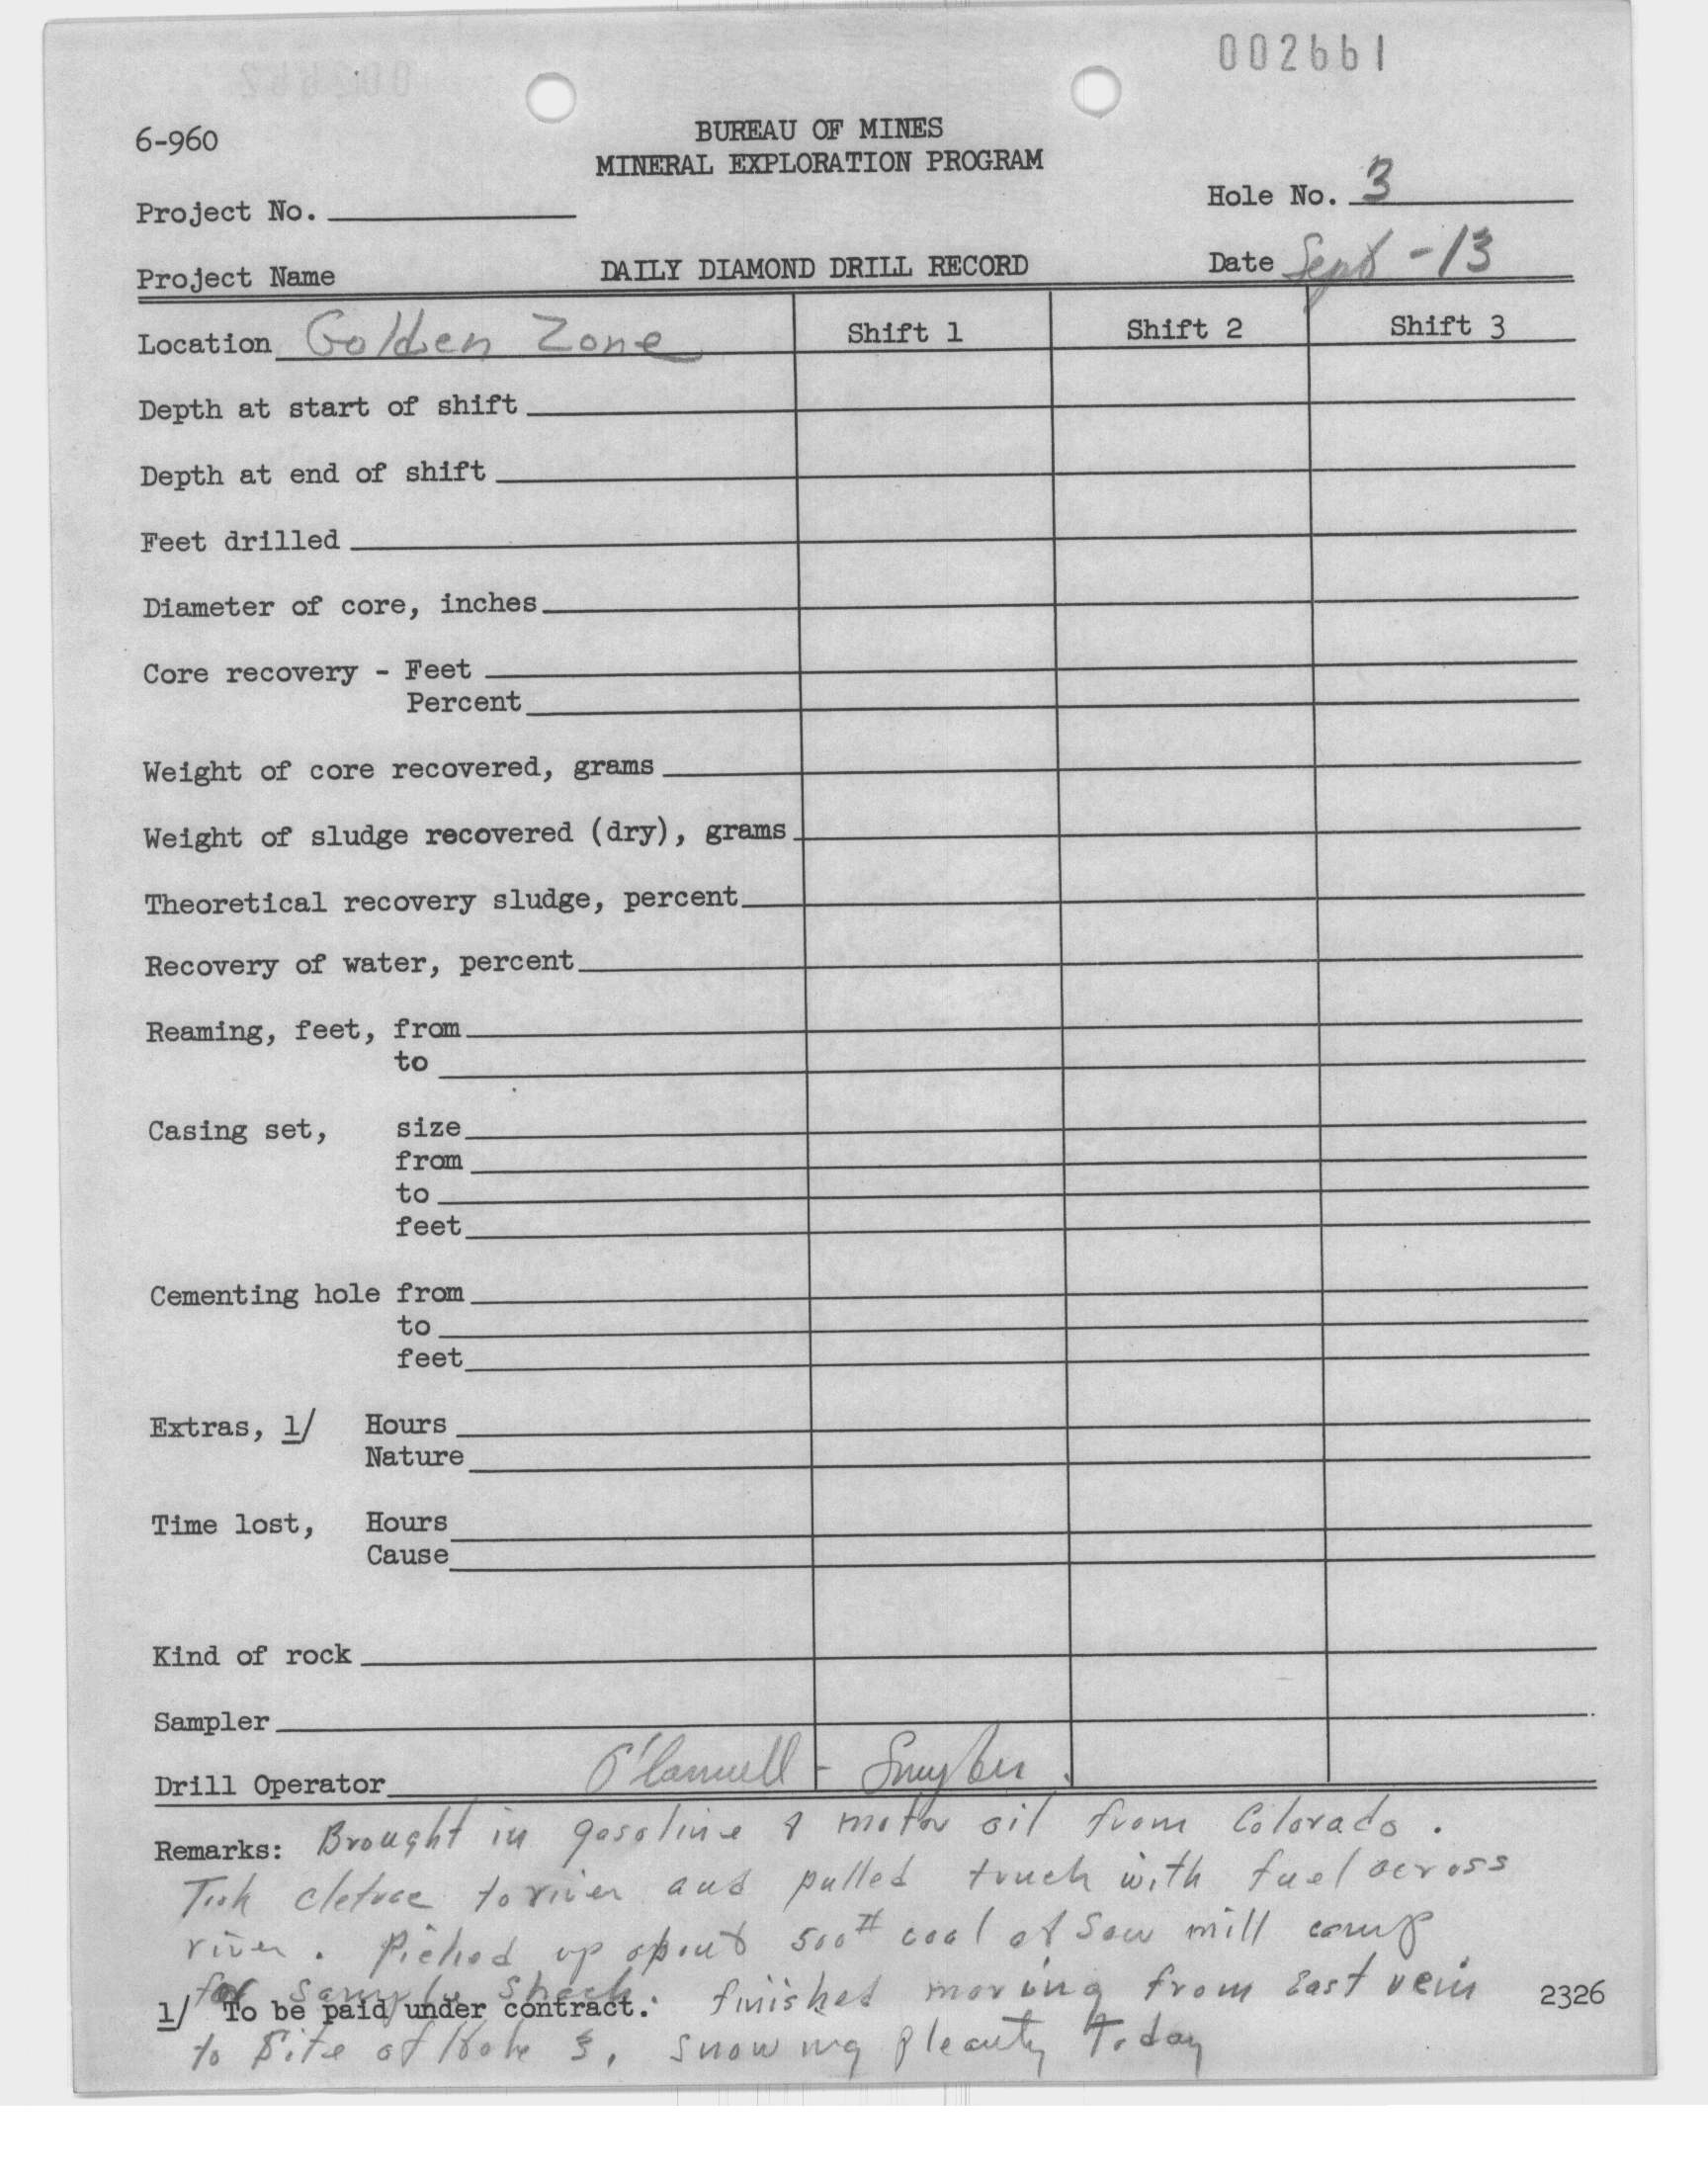 002661
6-960
BUREAU OF MINES
MINERAL EXPLORATION PROGRAM
Hole No. 3
Project No.
Project Name
DAILY DIAMOND DRILL RECORD
Date Sept - 13
Location Golden Zone
Shift 1
Shift 2
Shift 3
Depth at start of shift
Depth at end of shift
Feet drilled
Diameter of core, inches
Core recovery - Feet
Percent
Weight of core recovered, grams
Weight of sludge recovered (dry), grams
Theoretical recovery sludge, percent
Recovery of water, percent
Reaming, feet, from
to
Casing set, size
from
to
feet
Cementing hole from
to
feet
Extras, 1/ Hours
Nature
Time lost, Hours
Cause
Kind of rock
Sampler
Drill Operator
Remarks: Brought in gasoline & motor oil from Colorado.
Took cletrac to river and pulled truck with fuel across
river. Picked up about 500# coal at Saw mill camp
for sample shack. finished moving from East vein
1/ To be paid under contract.
2326
to Site of Hole 3. snowing pleanty Today